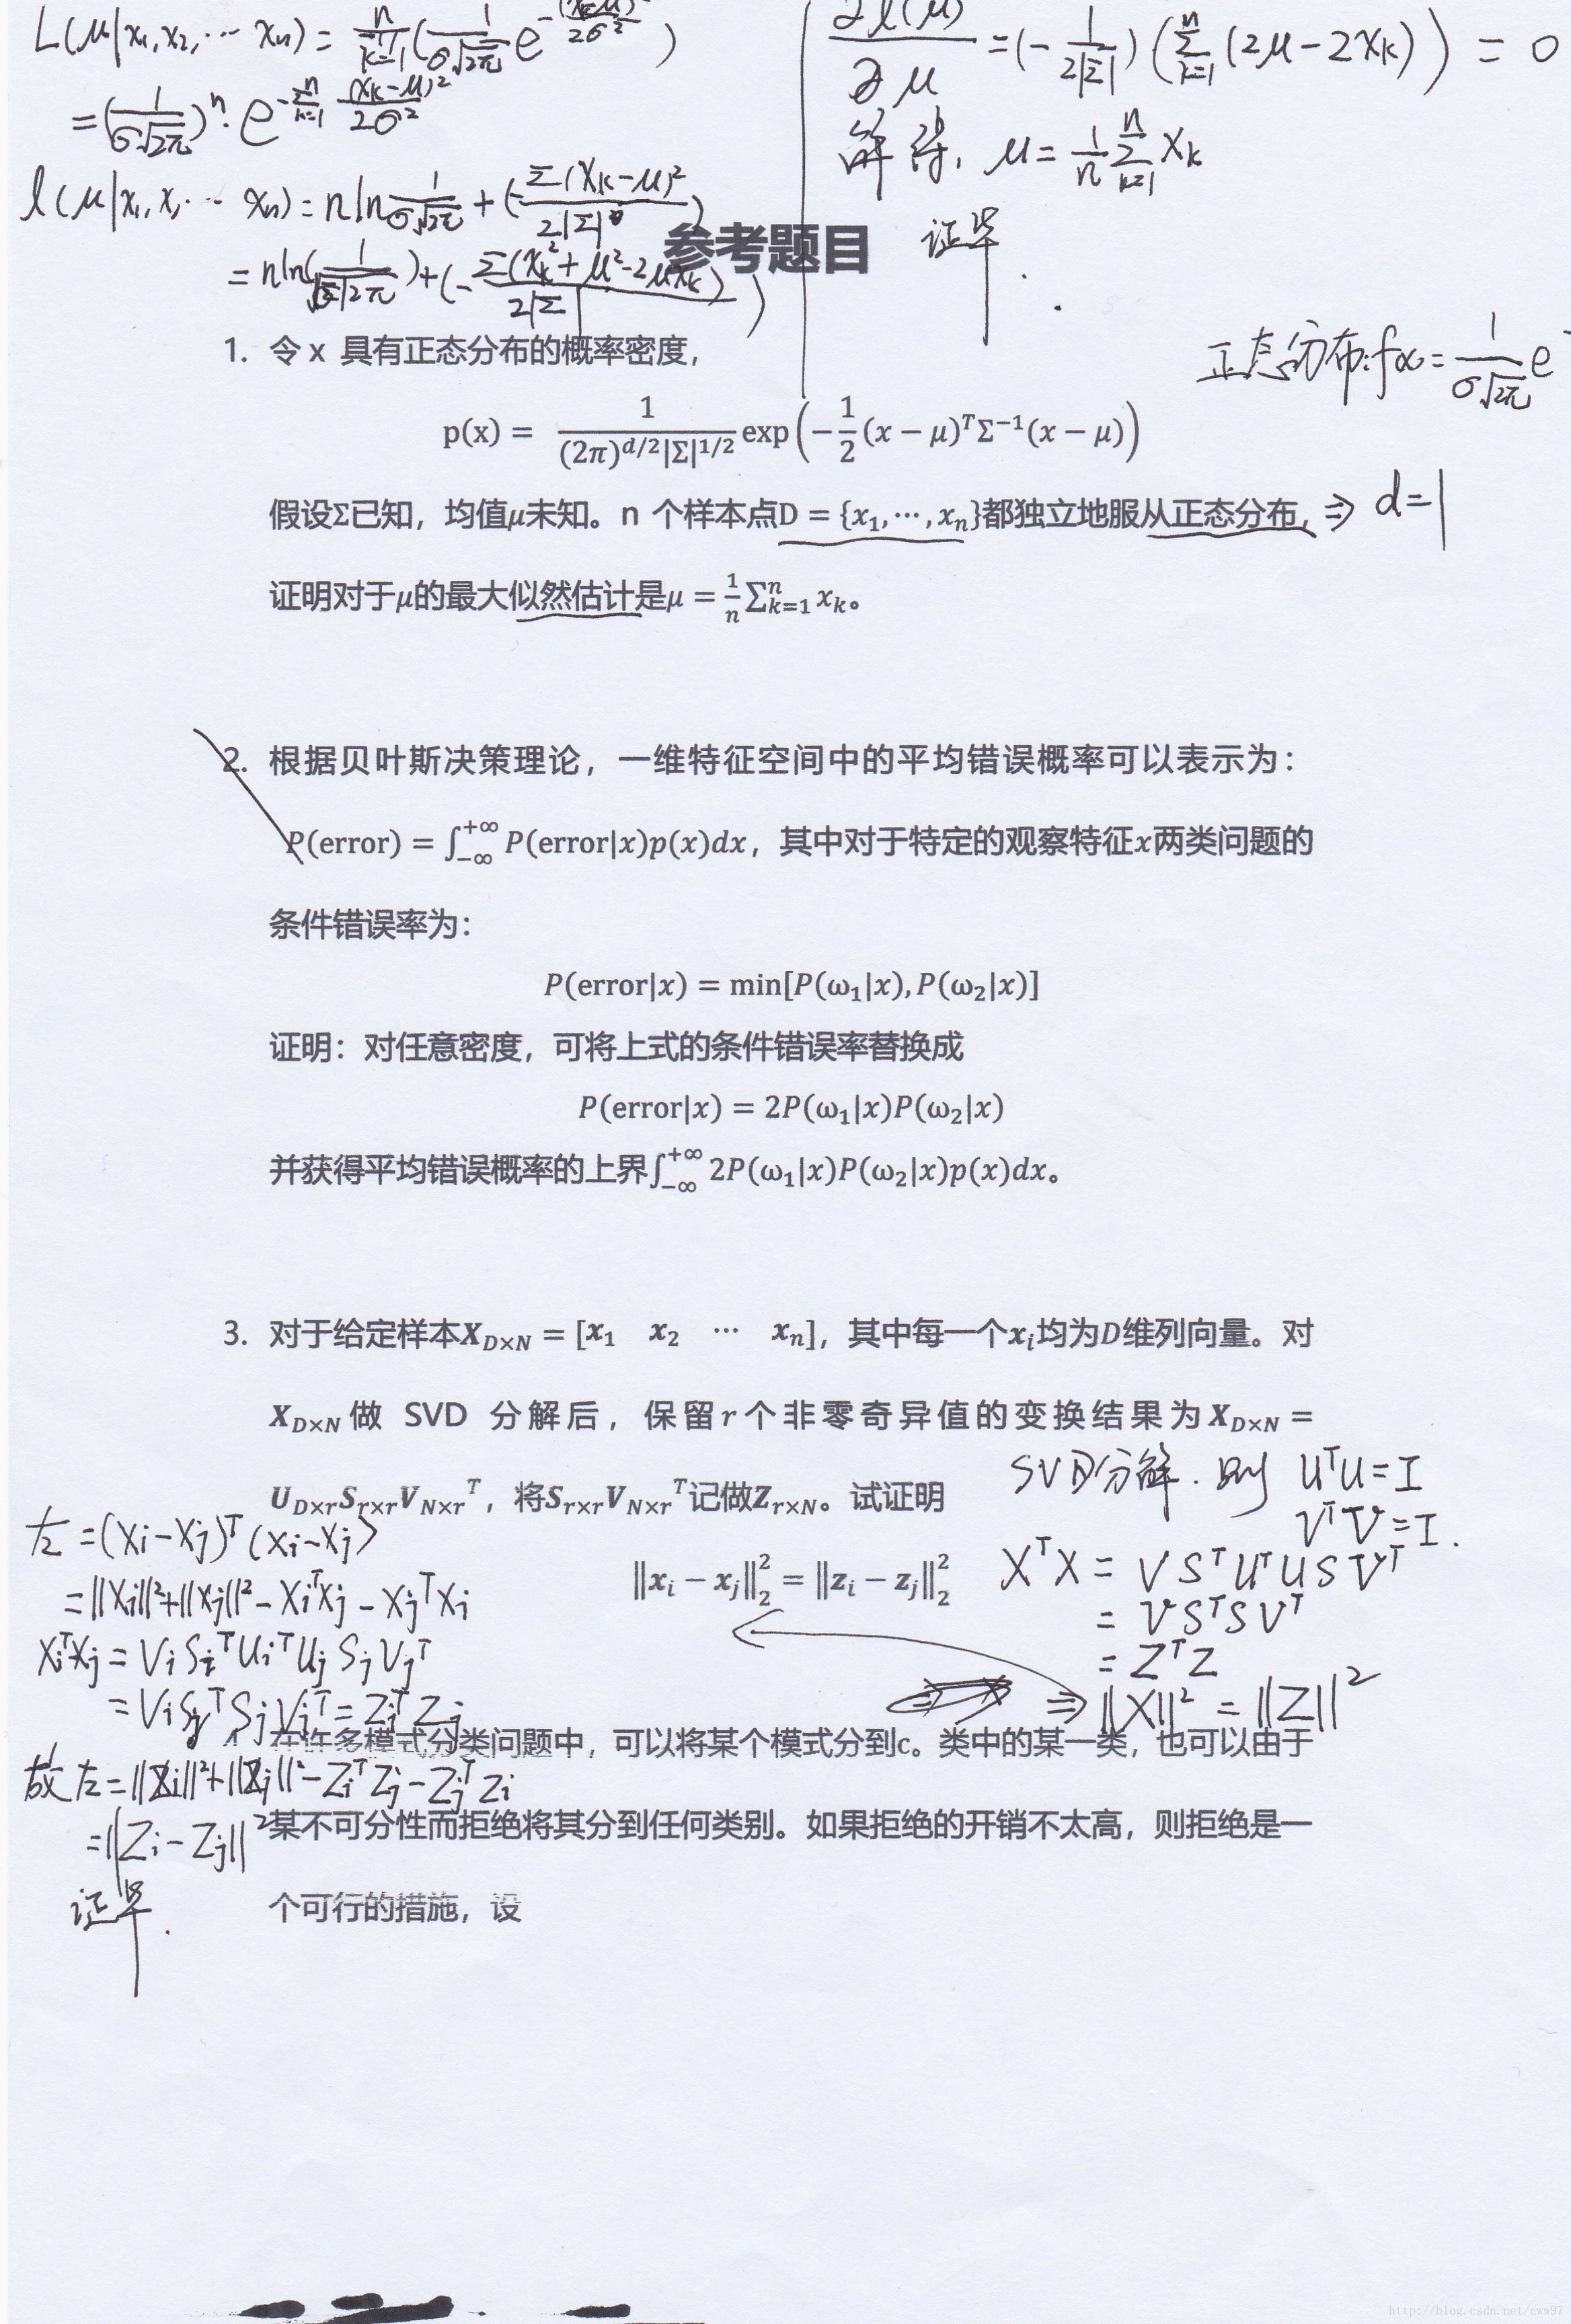 L(μ|x₁,x₂,⋯ xₙ) = ∏ₖ₌₁ⁿ (1/(σ√2π) e^(-(xₖ-μ)²/2σ²))
= (1/(σ√2π))ⁿ · e^(-∑ₖ₌₁ⁿ (xₖ-μ)²/2σ²)
l(μ|x₁,x,⋯ xₙ) = n ln 1/(σ√2π) + (-∑(xₖ-μ)²/2|Σ|)
= n ln(1/√|Σ|2π) + (-∑(xₖ²+μ²-2μxₖ)/2|Σ|)
∂l(μ)/∂μ = (-1/2|Σ|)(∑ₖ₌₁ⁿ(2μ-2xₖ)) = 0
解得, μ = 1/n ∑ₖ₌₁ⁿ xₖ
证毕.
参考题目
正态分布: f(x) = 1/(σ√2π) e
1. 令 x 具有正态分布的概率密度，
p(x) = 1/((2π)^(d/2)|Σ|^(1/2)) exp(-1/2 (x-μ)ᵀΣ⁻¹(x-μ))
假设Σ已知，均值μ未知。n 个样本点D = {x₁,⋯,xₙ}都独立地服从正态分布, ⇒ d=1
证明对于μ的最大似然估计是μ = 1/n ∑ₖ₌₁ⁿ xₖ。
2. 根据贝叶斯决策理论，一维特征空间中的平均错误概率可以表示为：
P(error) = ∫₋∞⁺∞ P(error|x)p(x)dx，其中对于特定的观察特征x两类问题的
条件错误率为：
P(error|x) = min[P(ω₁|x), P(ω₂|x)]
证明：对任意密度，可将上式的条件错误率替换成
P(error|x) = 2P(ω₁|x)P(ω₂|x)
并获得平均错误概率的上界∫₋∞⁺∞ 2P(ω₁|x)P(ω₂|x)p(x)dx。
3. 对于给定样本X_{D×N} = [x₁ x₂ ⋯ xₙ]，其中每一个xᵢ均为D维列向量。对
X_{D×N} 做 SVD 分解后，保留r个非零奇异值的变换结果为X_{D×N} =
U_{D×r}S_{r×r}V_{N×r}ᵀ，将S_{r×r}V_{N×r}ᵀ记做Z_{r×N}。试证明
‖xᵢ - xⱼ‖₂² = ‖zᵢ - zⱼ‖₂²
SVD分解. 则 UᵀU = I
VᵀV = I.
XᵀX = VSᵀUᵀUSVᵀ
= VSᵀSVᵀ
= ZᵀZ
⇒ ‖X‖² = ‖Z‖²
左 = (xᵢ-xⱼ)ᵀ(xᵢ-xⱼ)
= ‖xᵢ‖²+‖xⱼ‖² - xᵢᵀxⱼ - xⱼᵀxᵢ
xᵢᵀxⱼ = VᵢSᵢᵀUᵢᵀUⱼSⱼVⱼᵀ
= VᵢSᵢᵀSⱼVⱼᵀ = ZᵢᵀZⱼ
故左 = ‖Zᵢ‖²+‖Zⱼ‖² - ZᵢᵀZⱼ - ZⱼᵀZᵢ
= ‖Zᵢ-Zⱼ‖²
证毕.
在许多模式分类问题中，可以将某个模式分到c。类中的某一类，也可以由于
某不可分性而拒绝将其分到任何类别。如果拒绝的开销不太高，则拒绝是一
个可行的措施，设
http://blog.csdn.net/cww97